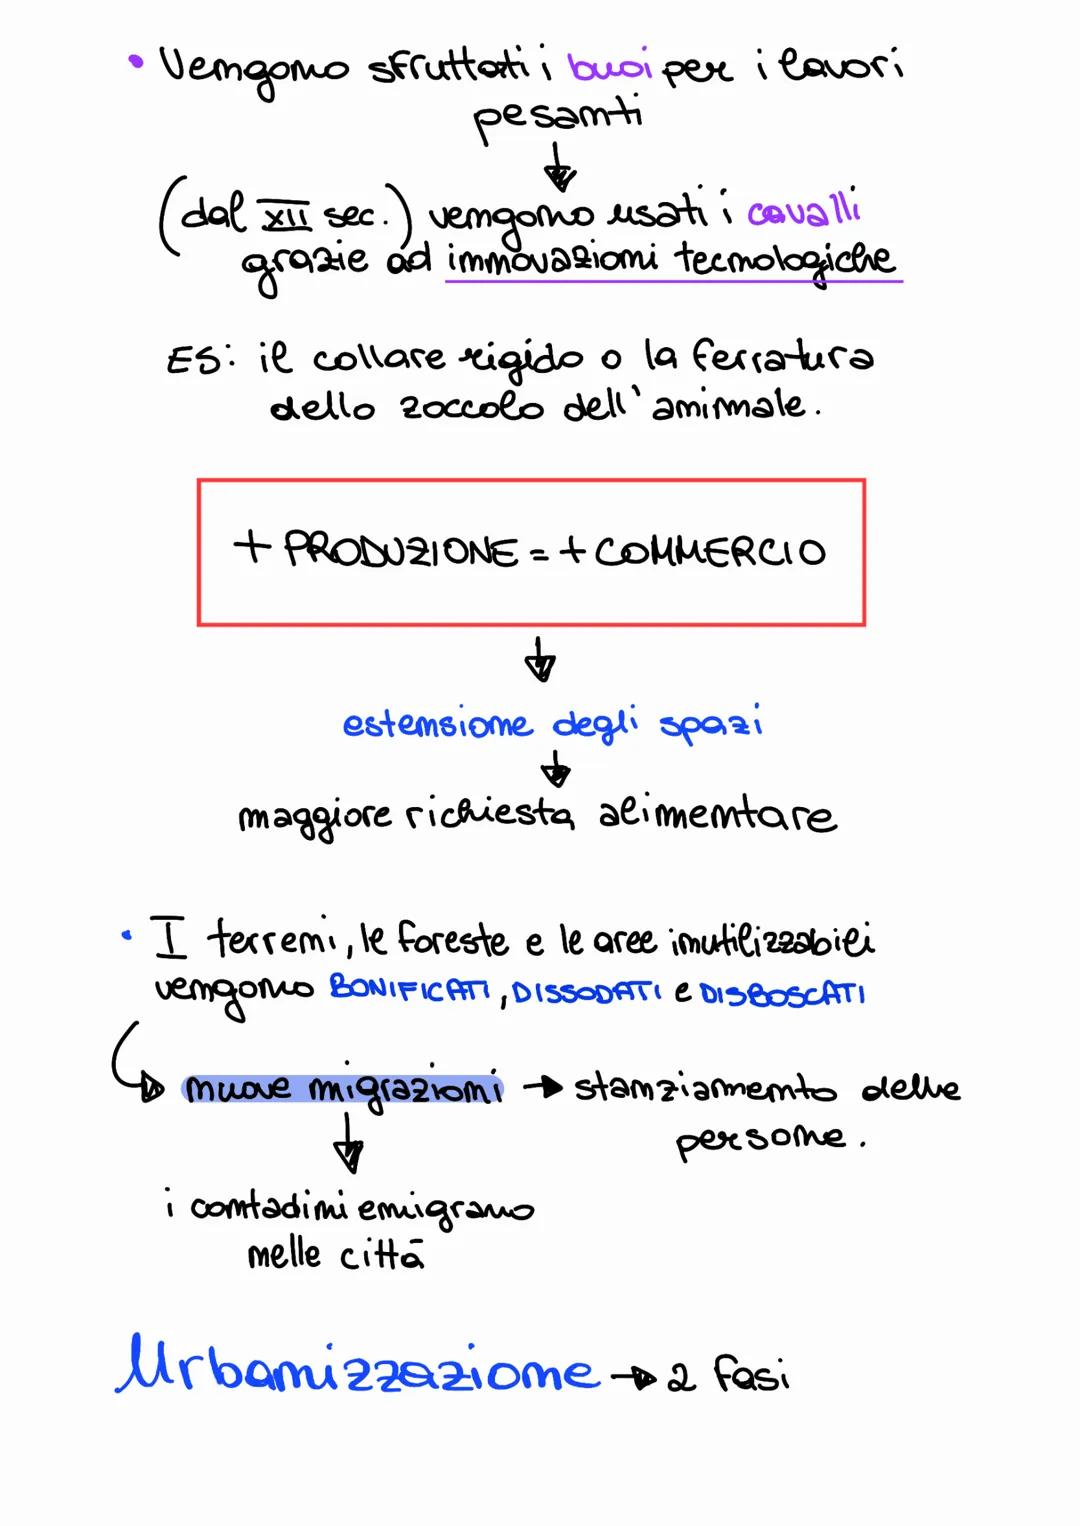 • Vengono sfruttati i buoi per i lavori
pesanti
(dal XII sec.) vengono usati i cavalli
grazie ad innovazioni tecnologiche
ES: il collare rigido o la ferratura
dello zoccolo dell'animale.
+ PRODUZIONE = + COMMERCIO
estensione degli spazi
maggiore richiesta alimentare
• I terreni, le foreste e le aree inutilizzabili
vengono BONIFICATI, DISSODATI e DISBOSCATI
nuove migrazioni → stanziamento delle
persone.
i contadini emigrano
nelle città
Urbanizzazione → 2 fasi